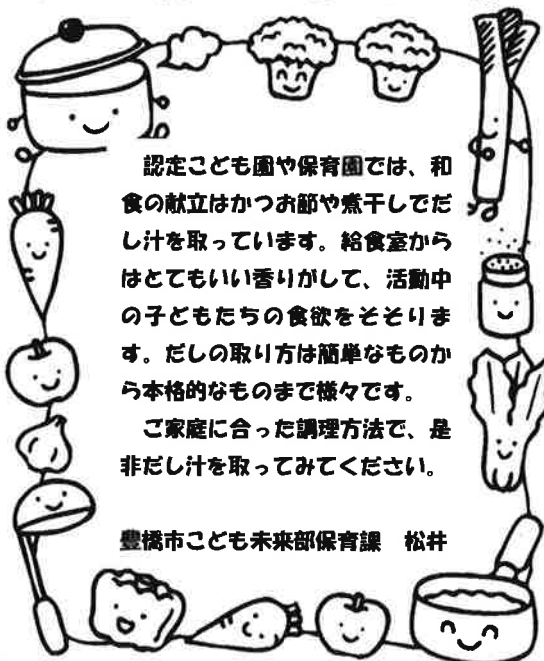 認定こども園や保育園では、和
食の献立はかつお節や煮干しでだ
し汁を取っています。給食室から
はとてもいい香りがして、活動中
の子どもたちの食欲をそそりま
す。だしの取り方は簡単なものか
ら本格的なものまで様々です。
ご家庭に合った調理方法で、是
非だし汁を取ってみてください。
豊橋市こども未来部保育課　松井